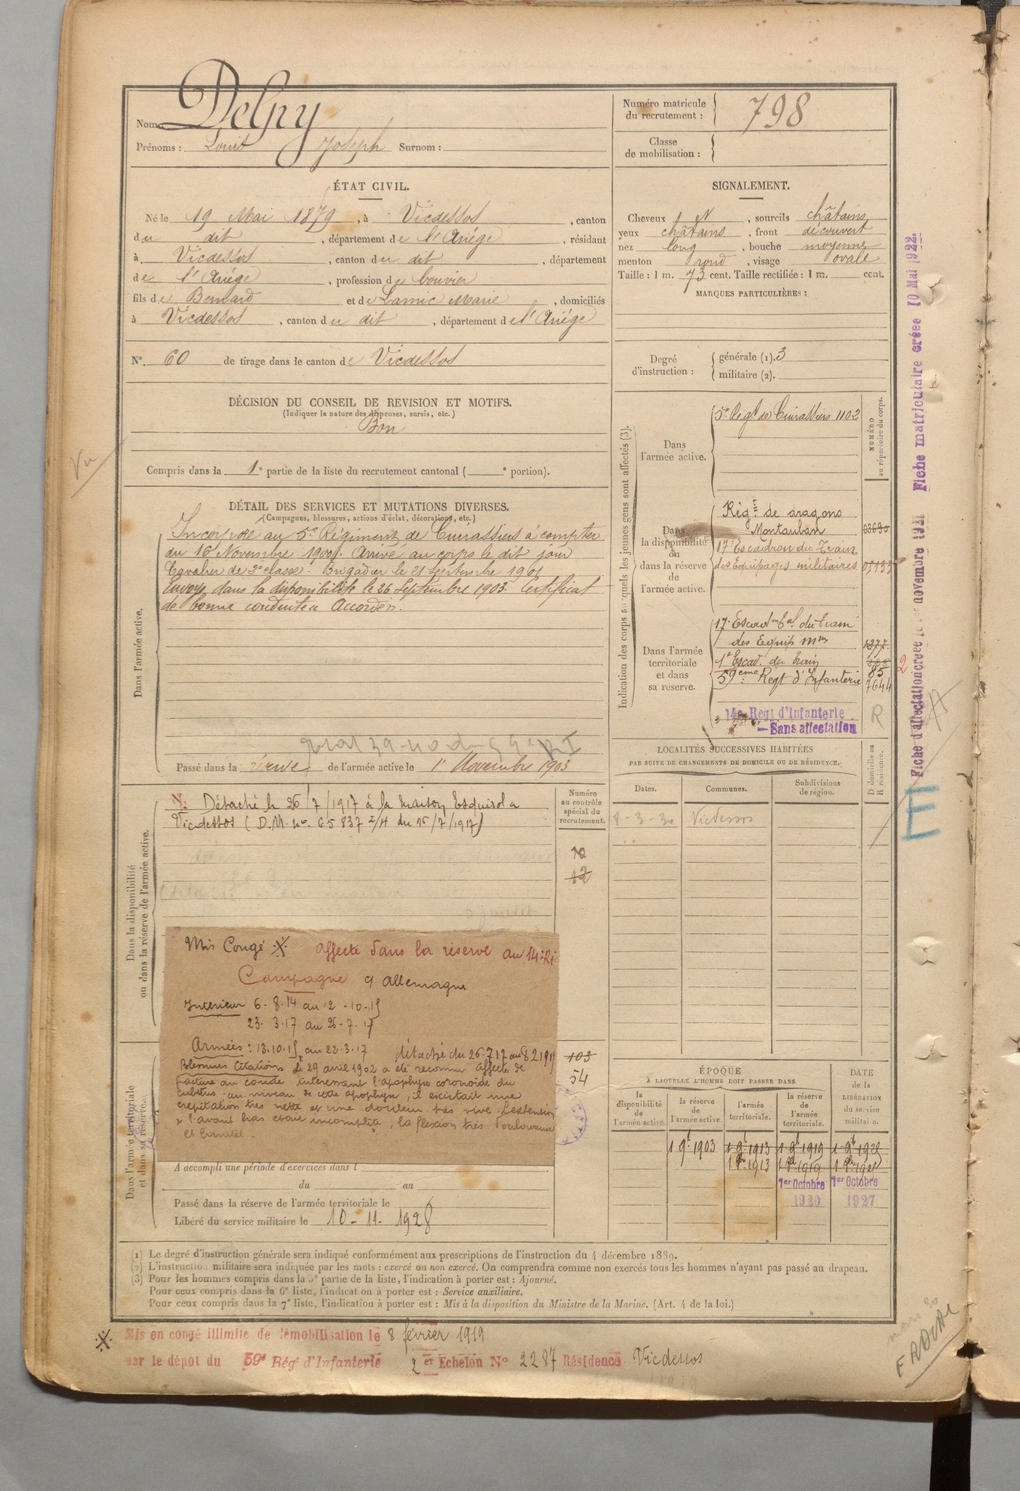 Nom: Delpy
Prénoms : Louis Joseph Surnom :
Numéro matricule du recrutement : 798
Classe de mobilisation :
ÉTAT CIVIL.
Né le 19 Mai 1879, à Vicdessos, canton
du dit, département de l'Ariège, résidant
à Vicdessos, canton du dit, département
de l'Ariège, profession de bouvier
fils de Bernard et de Lamic Marie, domiciliés
à Vicdessos, canton du dit, département de l'Ariège
N° 60 de tirage dans le canton de Vicdessos
SIGNALEMENT.
Cheveux N, sourcils châtains
yeux châtains, front découvert
nez long, bouche moyenne
menton rond, visage ovale
Taille : 1 m. 73 cent. Taille rectifiée : 1 m. cent.
MARQUES PARTICULIÈRES :
Degré d'instruction : générale (1). 3
militaire (2).
DÉCISION DU CONSEIL DE REVISION ET MOTIFS.
(Indiquer la nature des dispenses, sursis, etc.)
Bon
Vu
Compris dans la 1e partie de la liste du recrutement cantonal ( e portion).
DÉTAIL DES SERVICES ET MUTATIONS DIVERSES.
(Campagnes, blessures, actions d'éclat, décorations, etc.)
Dans l'armée active.
Incorporé au 5e Régiment de Cuirassiers à compter
du 16 Novembre 1900. Arrivé au corps le dit jour
Cavalier de 2e classe. Brigadier le 21 septembre 1901
Envoyé dans la disponibilité le 26 Septembre 1903. Certificat
de bonne conduite Accordé.
Passé dans la réserve de l'armée active le 1er Novembre 1903
Indication des corps auxquels les jeunes gens sont affectés (3).
NUMÉRO au répertoire du corps.
Dans l'armée active.
5e Régt de Cuirassiers 1102
Dans la disponibilité ou dans la réserve de l'armée active.
Régt de dragons
Montauban
17e Escadron du Train
des Equipages militaires
Dans l'armée territoriale et dans sa réserve.
17e Escadon tal du train
des Equip mres 1377
1er Escad. du train
59ème Régt d'Infanterie 7644
14e Regt d'Infanterie
Sans affectation
R
2
LOCALITÉS SUCCESSIVES HABITÉES
PAR SUITE DE CHANGEMENTS DE DOMICILE OU DE RÉSIDENCE.
Dates. Communes. Subdivisions de région. D. domicile ou R. résidence.
8-3-30 Vicdessos
Dans la disponibilité ou dans la réserve de l'armée active.
Détaché le 26/7/1917 à la maison Esquirol a
Vicdessos (D.M. no 65837 2/H du 15/7/1917)
Numéro au contrôle spécial du recrutement.
12
Mis Congé affecté dans la réserve au 14e RI
Campagne c/ Allemagne
Intérieur 6-8-14 au 12-10-15
23-3-17 au 26-7-17
Armées : 13.10.15 au 22-3-17 détaché du 26.7.17 au 8 2 1919
Blessures Citations le 29 avril 1902 a été reconnu affecté de
fracture au coude intéressant l'apophyse coronoïde du
cubitus au niveau de cette apophyse, il existait une
crépitation très nette et une douleur très vive l'extension
de l'avant bras était incomplète, la flexion très douloureuse
et limitée.
103
54
Dans l'armée territoriale et dans sa réserve.
A accompli une période d'exercices dans l
du au
Passé dans la réserve de l'armée territoriale le
Libéré du service militaire le 10-11-1928
ÉPOQUE À LAQUELLE L'HOMME DOIT PASSER DANS.
DATE de la LIBÉRATION du service militaire.
la disponibilité de l'armée active. la réserve de l'armée active. l'armée territoriale. la réserve de l'armée territoriale.
1 9t 1903 1 9t 1913 1 9t 1919
1er Octobre 1920 1er Octobre 1927
(1) Le degré d'instruction générale sera indiqué conformément aux prescriptions de l'instruction du 4 décembre 1889.
(2) L'instruction militaire sera indiquée par les mots : exercé ou non exercé. On comprendra comme non exercés tous les hommes n'ayant pas passé au drapeau.
(3) Pour les hommes compris dans la 5e partie de la liste, l'indication à porter est : Ajourné.
Pour ceux compris dans la 6e liste, l'indication à porter est : Service auxiliaire.
Pour ceux compris dans la 7e liste, l'indication à porter est : Mis à la disposition du Ministre de la Marine. (Art. 4 de la loi.)
Mis en congé illimité de démobilisation le 8 février 1919
par le dépôt du 59e Rég' d'Infanterie 2 er Echelon N° 2287 Résidence Vicdessos
Fiche matriculaire créée 10 Mai 1922.
Fiche d'affectation créée le novembre 1921